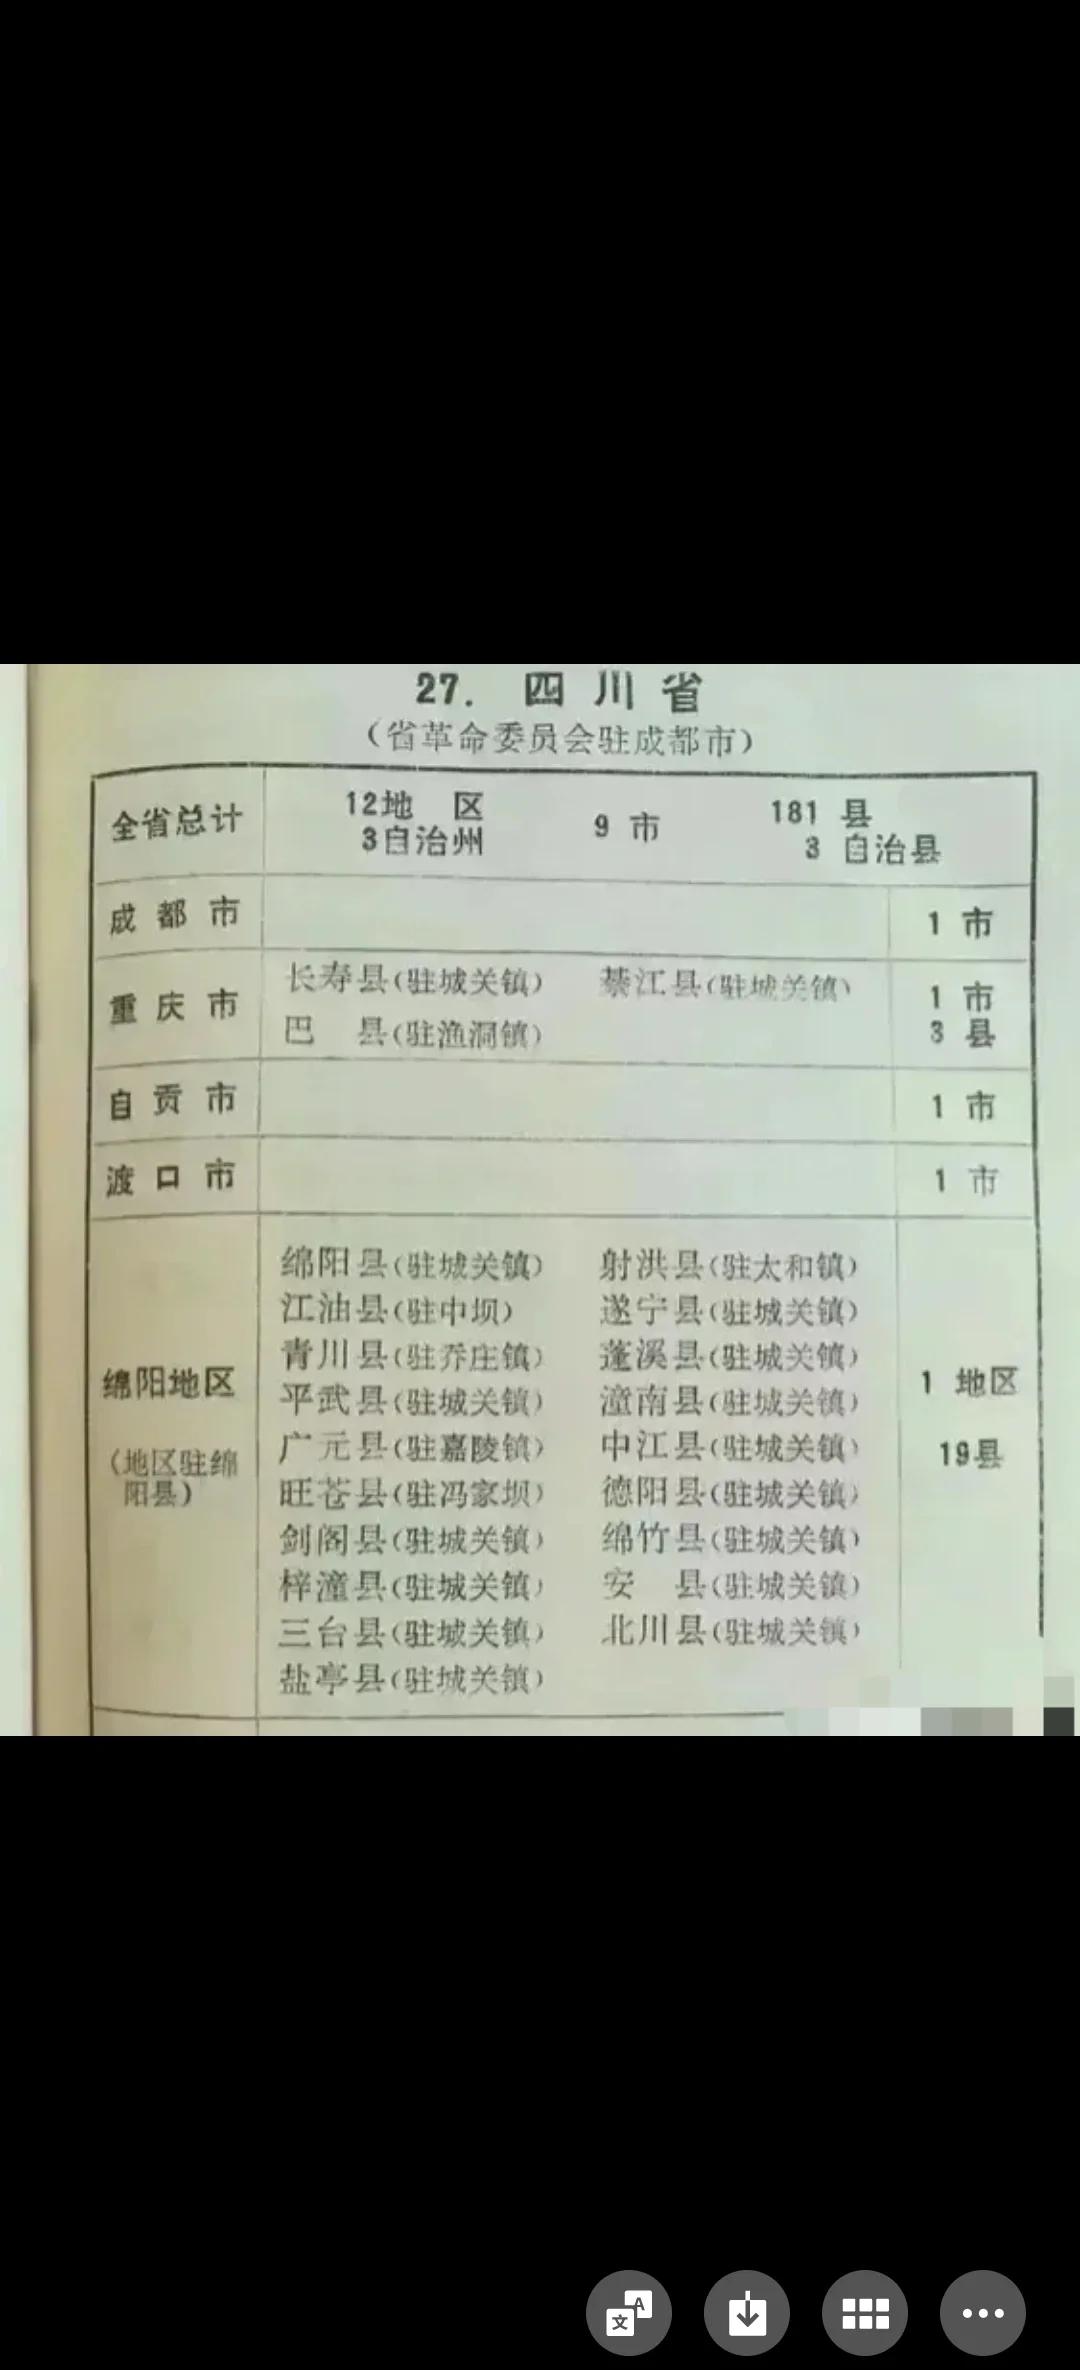 27. 四川省
（省革命委员会驻成都市）
全省总计 12地 区 9 市 181 县
3自治州 3 自治县
成都市 1 市
重庆市 长寿县（驻城关镇） 綦江县（驻城关镇） 1 市
巴 县（驻渔洞镇） 3 县
自贡市 1 市
渡口市 1 市
绵阳县（驻城关镇） 射洪县（驻太和镇）
江油县（驻中坝） 遂宁县（驻城关镇）
青川县（驻乔庄镇） 蓬溪县（驻城关镇）
绵阳地区 平武县（驻城关镇） 潼南县（驻城关镇） 1 地区
（地区驻绵 广元县（驻嘉陵镇） 中江县（驻城关镇） 19县
阳县） 旺苍县（驻冯家坝） 德阳县（驻城关镇）
剑阁县（驻城关镇） 绵竹县（驻城关镇）
梓潼县（驻城关镇） 安 县（驻城关镇）
三台县（驻城关镇） 北川县（驻城关镇）
盐亭县（驻城关镇）